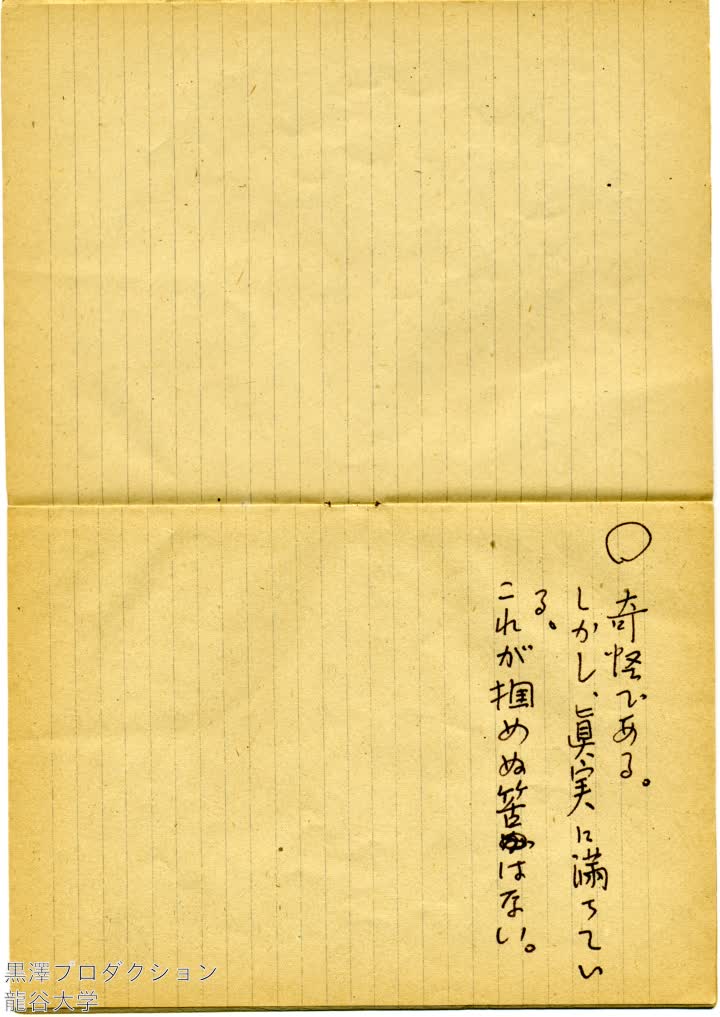 ○ 奇怪である。
しかし、眞実に満ちてい
る。
これが掴めぬ筈はない。
黒澤プロダクション
龍谷大学